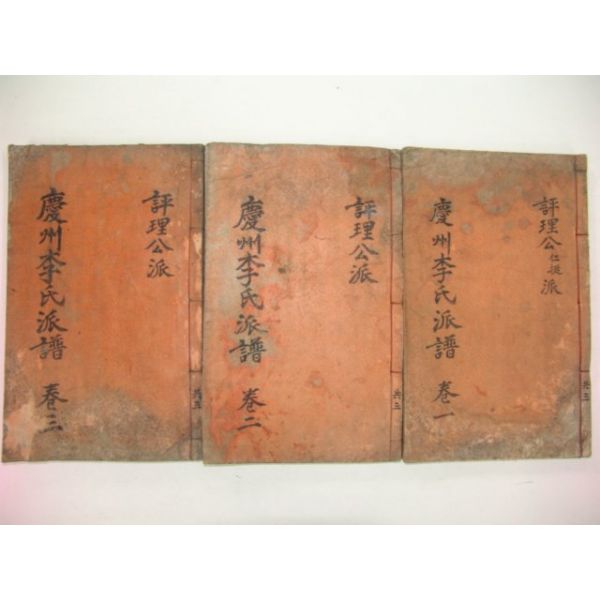 評理公仁挺派
慶州李氏派譜 卷一
共三
評理公派
慶州李氏派譜 卷二
共三
評理公派
慶州李氏派譜 卷三
共三